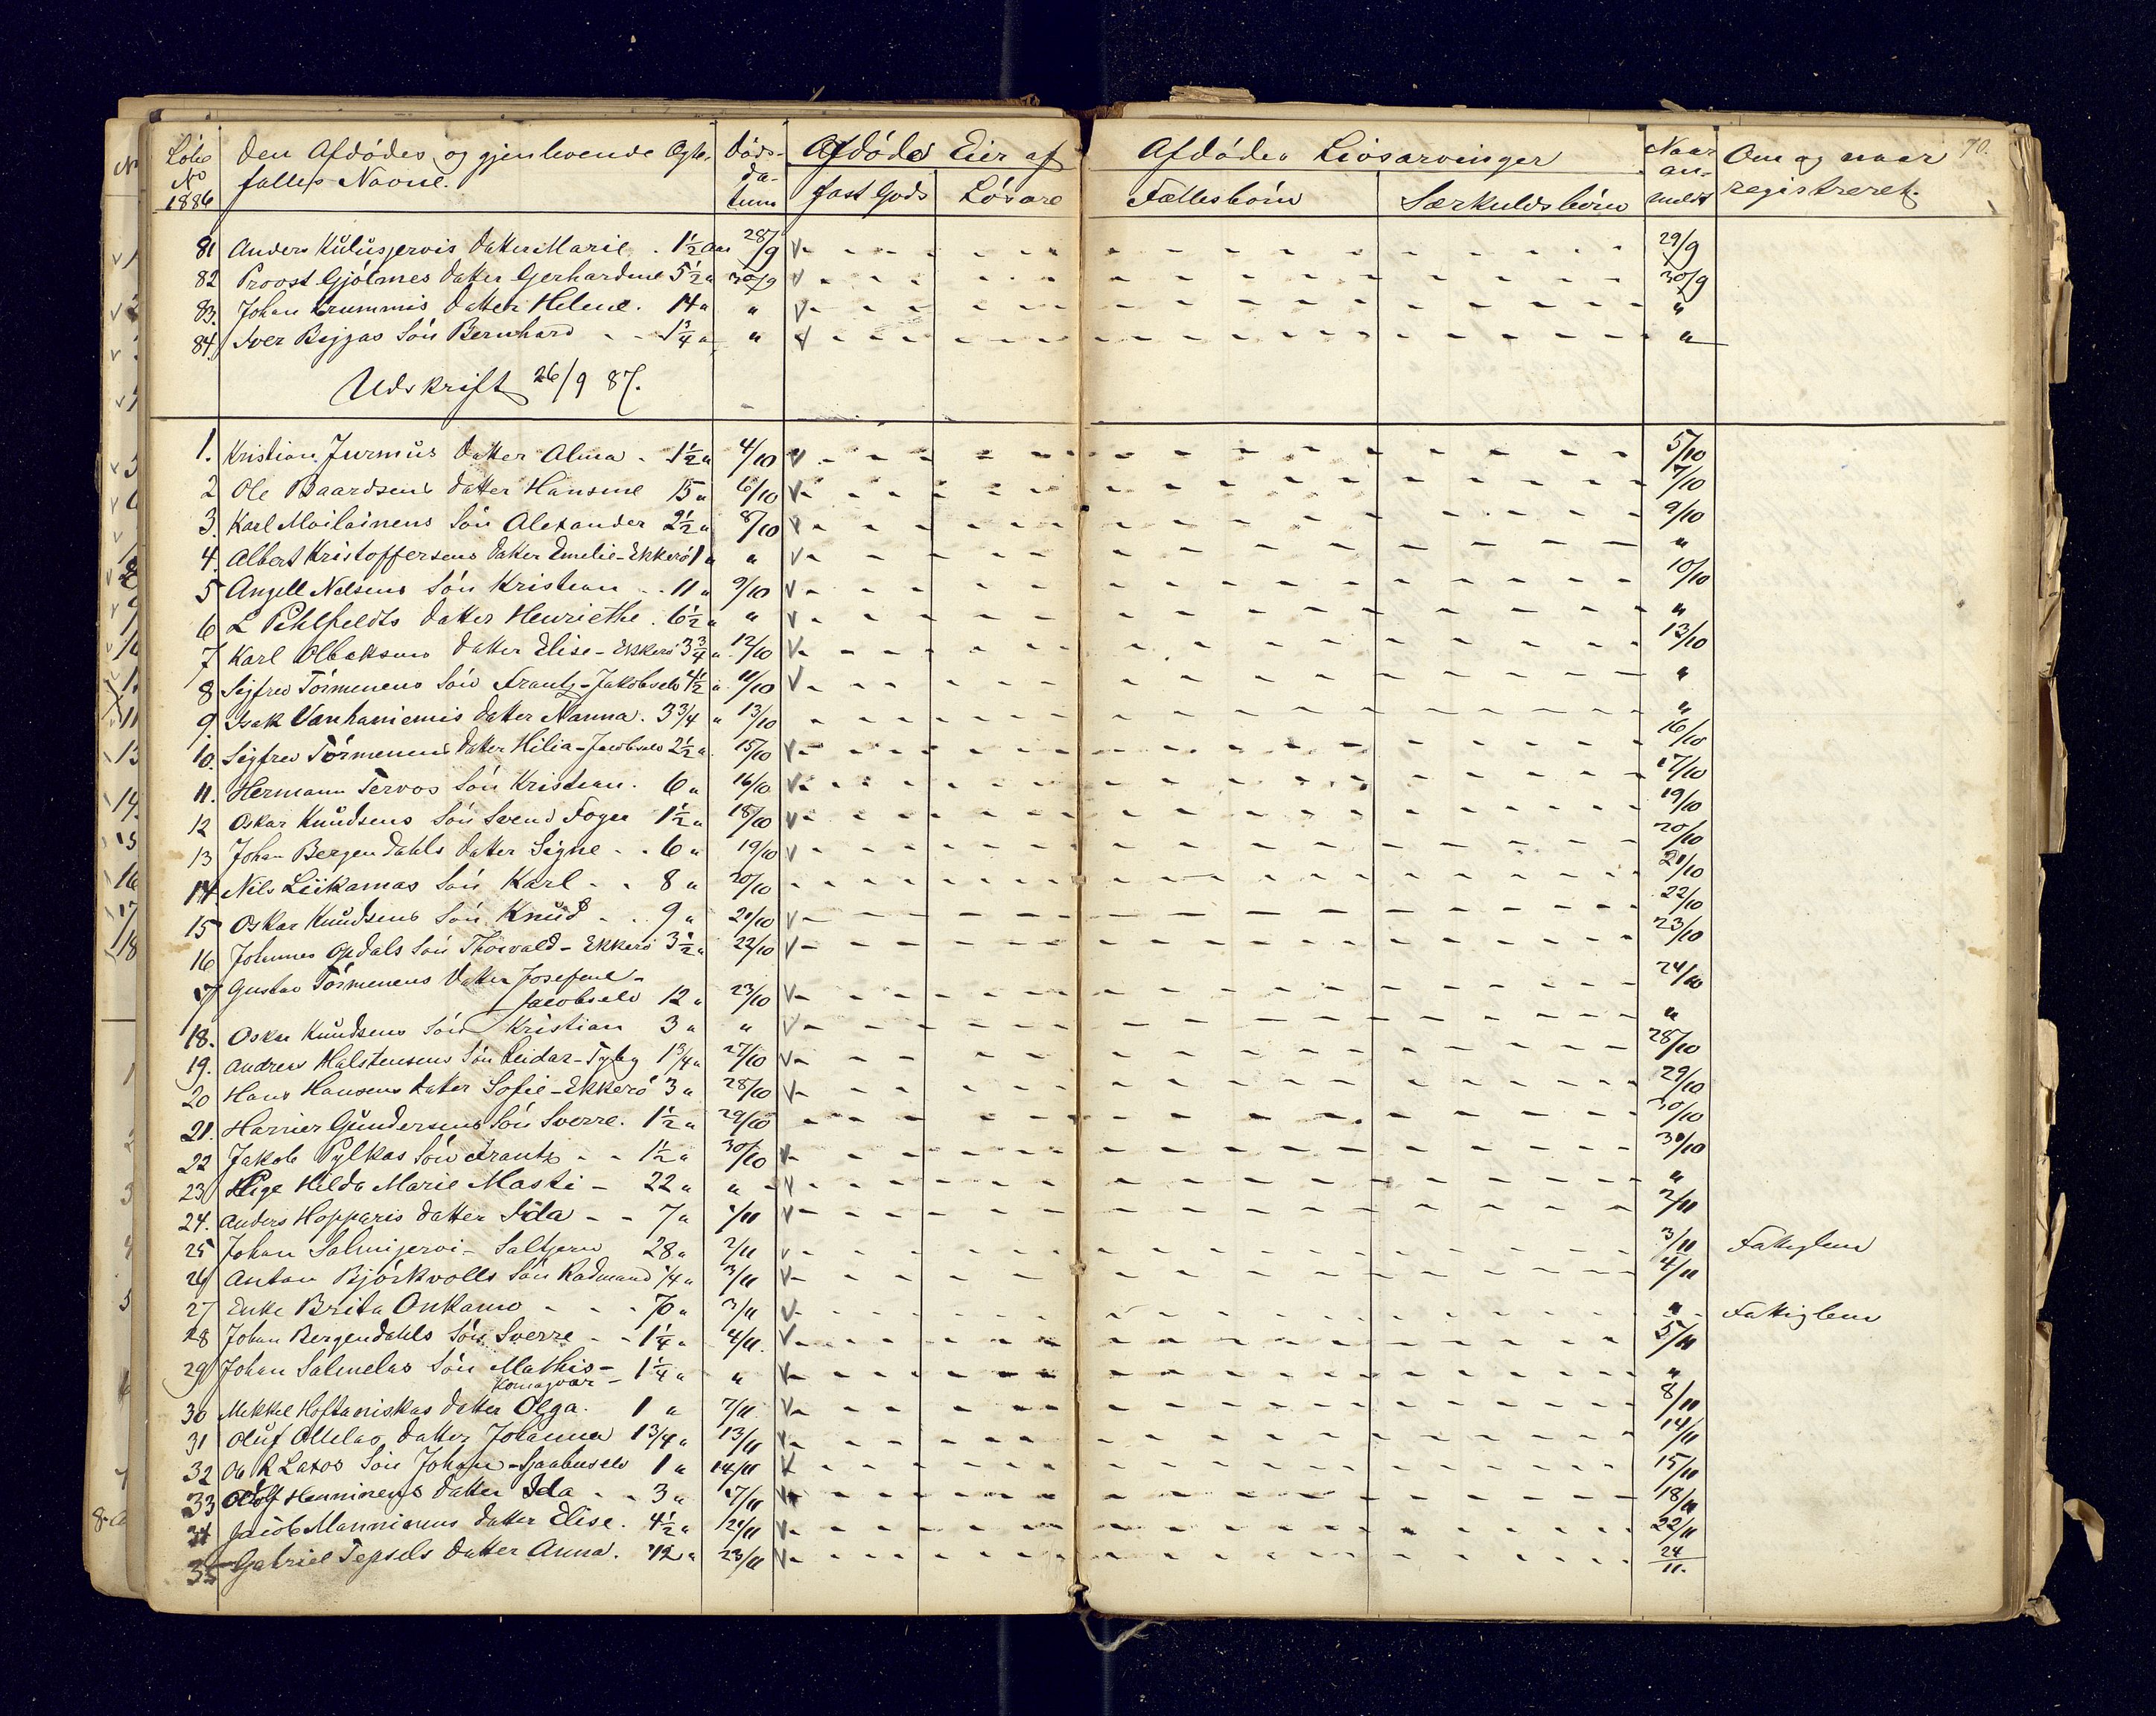 Löbe No 1886 | Den Afdödes og gjenlevende Ægte- | Döds- da- tum | Afdöde Eier af | Afdödes Livsarvinger | Naar an- meldt | Om og naar | 70.
fælles Navne. | fast Gods | Lösöre | Fællesbörn | Særkuldsbörn | registreret.
81 Anders Kulusjervis Datter Marie . 1½ Aar 28/9 V 29/9
82 Provst Gjölmes Datter Gerhardine 5½ " 30/9 V 30/9
83. Johan Krummis Datter Helene. 14 " " V "
84. Iver Biggas Sön Bernhard - - 1¾ " " V "
Udskrift 26/9 87.
1. Kristian Jurmus Datter Alma - 1½ " 4/10 V 5/10
2 Ole Baardsens Datter Hansine 15 " 6/10 V 7/10
3. Karl Moilainens Sön Alexander 2½ " 8/10 V 9/10
4. Albert Kristoffersens Datter Emelie - Ekkerö 1 " " V "
5 Angell Nelsens Sön Kristian - - 11 " 9/10 V 10/10
6 L Pihlfeldts Datter Henriethe . 6½ " " V "
7 Karl Olbaksens Datter Elise - Ekkerö 3¾ " 12/10 V 13/10
8 Sigfred Törmenens Sön Frantz - Jakobselv 4½ " 11/10 V "
9. Isak Vanhaniemis Datter Nanna. 3¾ " 13/10 "
10. Sigfred Törmenens Datter Hilia - Jacobselv 2½ " 15/10 V 16/10
11. Hermann Tervos Sön Kristian. 6 " 16/10 V 17/10
12 Oskar Knudsens Sön Svend Foger 1½ " 18/10 V 19/10
13 Johan Bergendahls Datter Signe - - 6 " 19/10 V 20/10
14 Nils Liikamas Sön Karl - - 8 " 20/10 21/10
15 Oskar Knudsens Sön Knud - - 9 " 21/10 V 22/10
16 Johannes Opdals Sön Thorvald - Ekkerö 3½ " 22/10 V 23/10
17 Gustav Törmenens Datter Josefine -
Jacobselv 12 " 23/10 V 24/10
18. Oskar Knudsens Sön Kristian 3 " " V "
19. Andreas Halstensens Sön Reidar - Tyby 1¾ " 27/10 V 28/10
20 Hans Hansens Datter Sofie - Ekkerö 3 " 28/10 V 29/10
21. Harrier Gundersens Sön Sverre. 1½ " 29/10 30/10
22 Jakob Pylkas Sön Frantz - - 1½ " 30/10 V 31/10
23 Pige Hilda Marie Masti - 22 " " V "
24. Anders Hopparis Datter Ida - - 7 " 1/11 V 2/11
25 Johan Salmijervi - Saltjern 28 " 2/11 V 3/11 Fattiglem
26 Anton Björkvolls Sön Radmand ¼ " 3/11 V 4/11
27 Enke Brita Onkamo - - - 70 " 3/11 V " Fattiglem
28 Johan Bergendahls Sön Sverre - - 1¼ " 4/11. V 5/11
29 Johan Salmelas Sön Mathis -
Komagvær - 1¼ " " V "
30 Mikkel Hoftaniskas Datter Olga. 1 " 7/11 V 8/11
31 Oluf Ollilas Datter Johanna 1¾ " 13/11 V 14/11
32 R Laxos Sön Johan - 1 " 14/11 V 15/11
33 Adolf Henninens Datter Ida - - 3 " 17/11 V 18/11
34 Jacob Manninens Datter Elise. 4½ " 21/11 V 22/11
35 Gabriel Tepsels Datter Anna. 12 " 23/11 V 24/11.